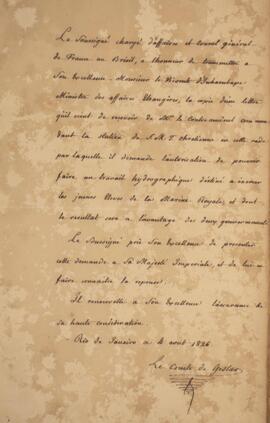 Le Soussigné chargé d'affaires et consul général
de France au Brésil, a l'honneur de transmettre à
Son Excellence Monsieur le Vicomte d'Inhambupe
Ministre des affaires Etrangères, la copie d'une lettre
qu'il vient de recevoir de Mr. le Contre amiral comman
dant la station de S. M. T. Chrétienne en cette rade
par laquelle il demande l'autorisation de pouvoir
faire, un travail hydrographique destiné à exercer
les jeunes élèves de la Marine Royale, et dont
le resultat sera à l'avantage des deux gouvernements.
Le Soussigné prie Son Excellence de presenter
cette demande à Sa Majesté Impériale, et de lui en
faire connaitre la reponse.
Il renouvelle à Son Excellence l'assurance de
sa haute considération.
Rio de Janeiro le 4 aout 1826
Le Comte de Gestas